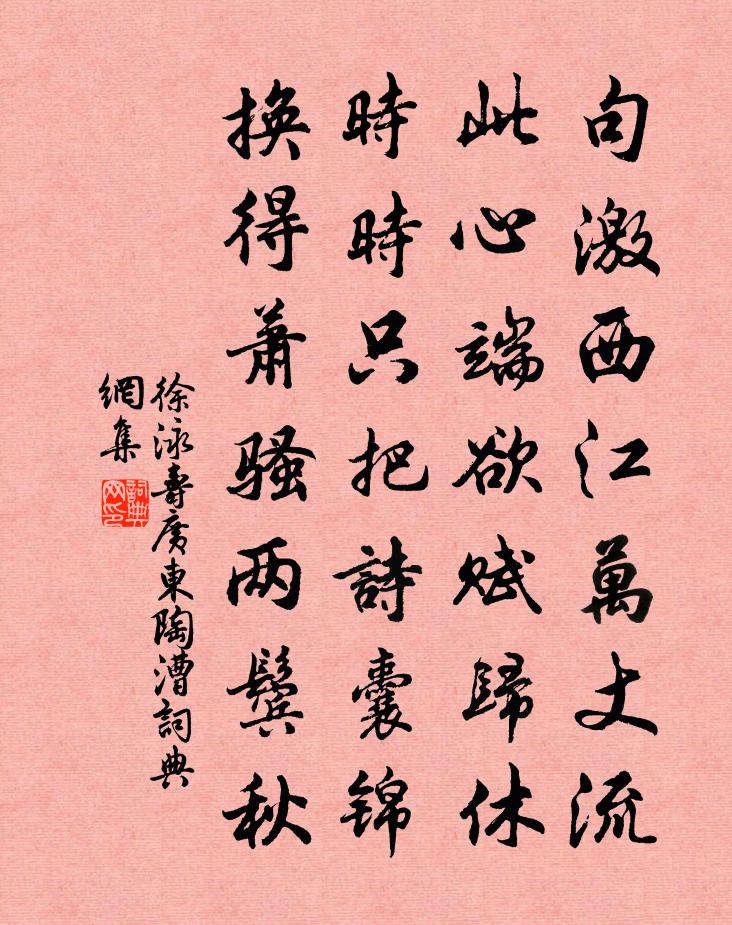 句激西江萬丈流
此心端欲賦歸休
時時只把詩囊锦
換得蕭骚两鬓秋
徐泳壽廣東陶漕詞典
網集
詞典
网印